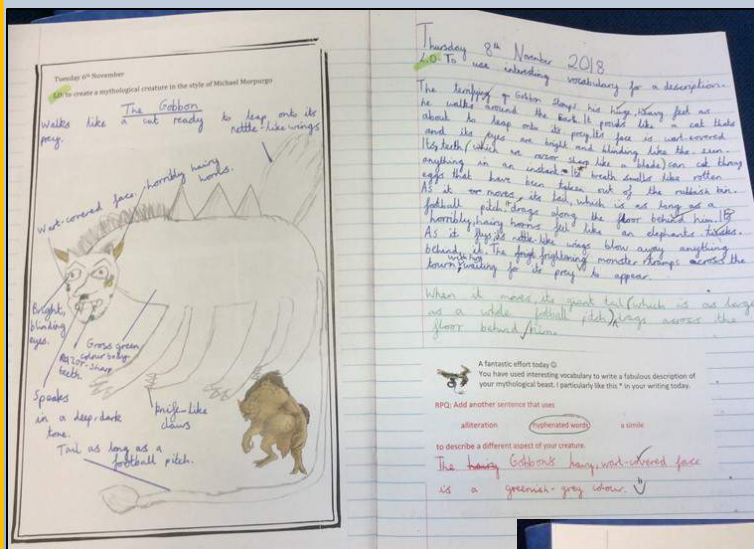 Tuesday 6th November
LO: to create a mythological creature in the style of Michael Morpurgo
The Gobbon
Walks like a cat ready to leap onto its
prey.
nettle-like wings
Wart-covered face, horribly hairy
horns.
Bright,
blinding
eyes.
Gross green
colour body
Razor-sharp
teeth.
Speaks
in a deep-dark
tone.
Knife-like
claws
Tail as long as a
football pitch.
Thursday 8th November 2018
L.O- To use interesting vocabulary for a description.
The terrifying Gobbon stomps his huge, heavy feet as
he walks around the It prowls like a cat thats
about to leap onto its prey. Its face is wart-covered
and its eyes are bright and blinding like the sun.
Its teeth (which are razor sharp like a blade) can cut throug
anything in an instant. breath smells like rotten
eggs that have been taken out of the rubbish bin.
As it moves, its tail, which is as long as a
football pitch, drags along the floor behind him.
horribly, hairy horns feel like an elephants
As it flys, its nettle-like wings blow away anything
behind it. The frightening monster stomps across the
town waiting for its prey to appear.
When it moves, its giant tail (which is as large
as a whole fotball pitch) drags across the
floor behind him.
A fantastic effort today ☺
You have used interesting vocabulary to write a fabulous description of
your mythological beast. I particularly like this * in your writing today.
RPQ: Add another sentence that uses
alliteration hyphenated words a simile
to describe a different aspect of your creature.
The Gobbon's hairy, wart-covered face
is a greenish-grey colour.